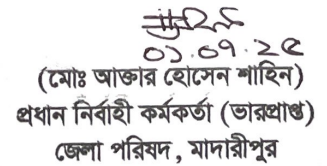 ০১.০৭.২৫
(মোঃ আক্তার হোসেন শাহিন)
প্রধান নির্বাহী কর্মকর্তা (ভারপ্রাপ্ত)
জেলা পরিষদ, মাদারীপুর